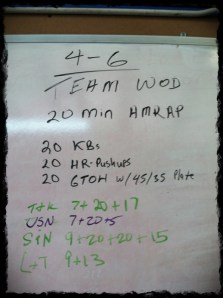 4-6
TEAM WOD
20 min AMRAP
20 KBs
20 HR-Pushups
20 GTOH w/45/35 Plate
7+20+17
USN 7+20+5
9+20+20+15
9+13